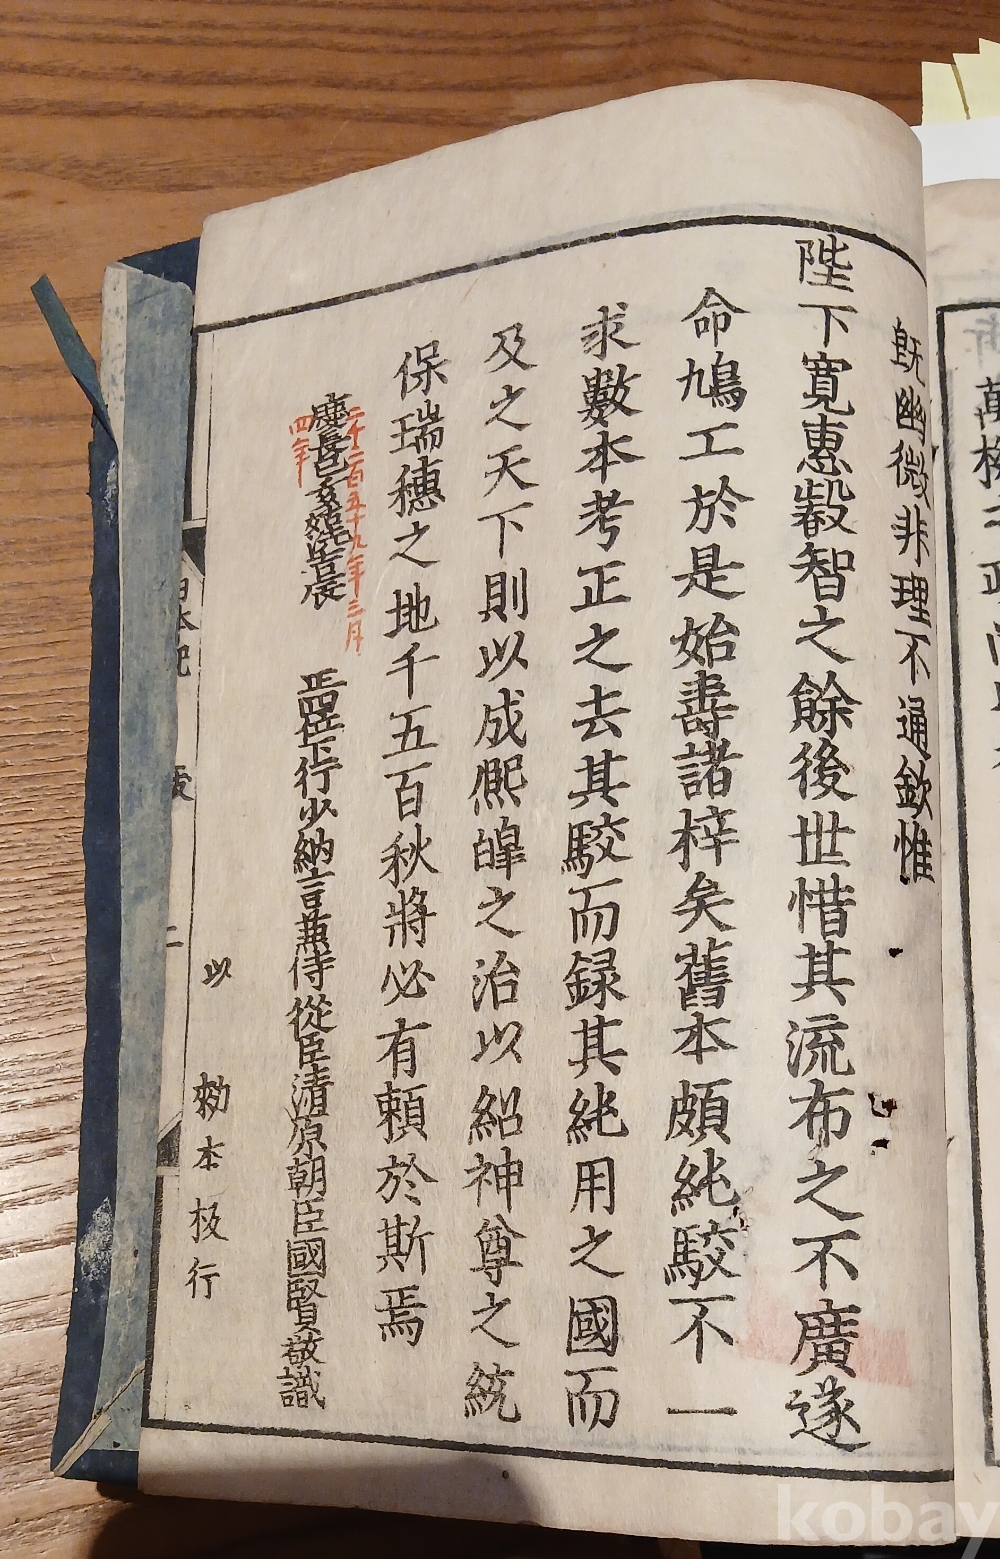 既幽微非理不通欽惟
陛下寛惠叡智之餘後世惜其流布之不廣遂
命鳩工於是始壽諸梓矣舊本頗純駁不一
求數本考正之去其駁而録其純用之國而
及之天下則以成熙皞之治以紹神尊之統
保瑞穗之地千五百秋將必有頼於斯焉
二千二百五十九年三月
慶長己亥姑洗吉辰
四年
正四位下行少納言兼侍從臣清原朝臣國賢敬識
以
勅本板行
日本紀
跋
二
kobay